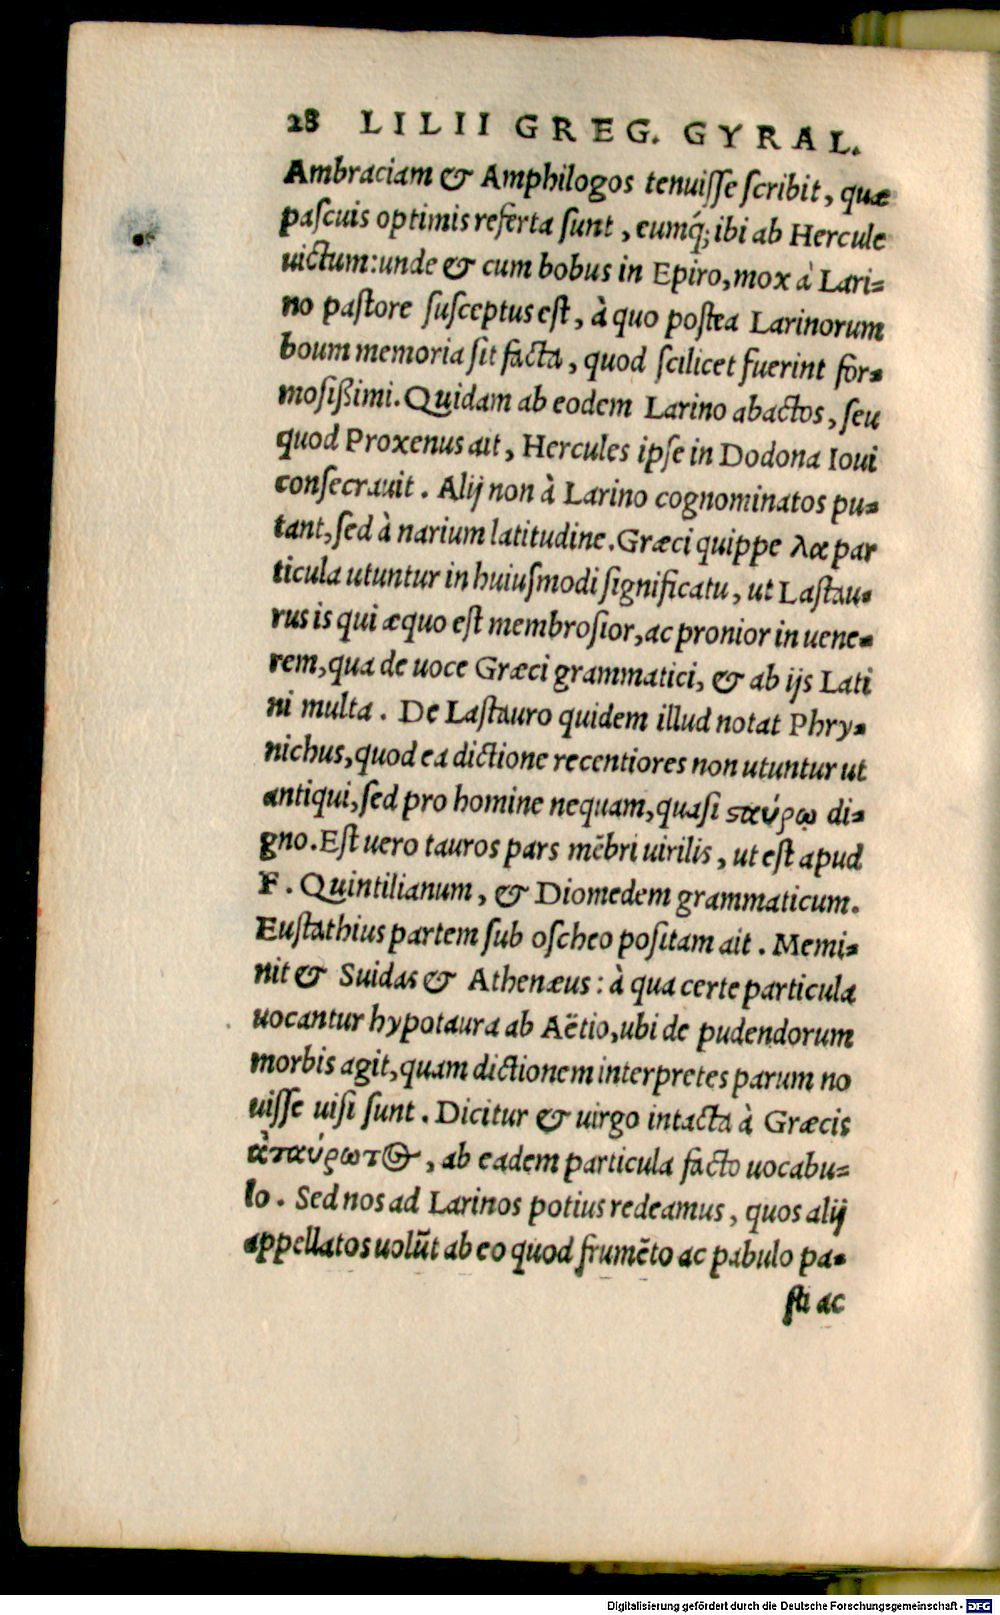 28 LILII GREG. GYRAL.
Ambraciam & Amphilogos tenuiſſe ſcribit, quæ
paſcuis optimis referta ſunt, eumq́; ibi ab Hercule
uictum: unde & cum bobus in Epiro, mox à Lari-
no paſtore ſuſceptus eſt, à quo poſtea Larinorum
boum memoria ſit facta, quod ſcilicet fuerint for-
moſißimi. Quidam ab eodem Larino abactos, ſeu
quod Proxenus ait, Hercules ipſe in Dodona Ioui
conſecrauit. Alij non à Larino cognominatos pu-
tant, ſed à narium latitudine. Græci quippe λα par
ticula utuntur in huiuſmodi ſignificatu, ut Laſtau-
rus is qui æquo eſt membroſior, ac pronior in uene-
rem, qua de uoce Græci grammatici, & ab ijs Lati
ni multa. De Laſtauro quidem illud notat Phry-
nichus, quod ea dictione recentiores non utuntur ut
antiqui, ſed pro homine nequam, quaſi ϛαύρῳ di-
gno. Eſt uero tauros pars mẽbri uirilis, ut eſt apud
F. Quintilianum, & Diomedem grammaticum.
Euſtathius partem ſub oſcheo poſitam ait. Memi-
nit & Suidas & Athenæus: à qua certe particula
uocantur hypotaura ab Aëtio, ubi de pudendorum
morbis agit, quam dictionem interpretes parum no
uiſſe uiſi ſunt. Dicitur & uirgo intacta à Græcis
ἀταύρωτος, ab eadem particula facto uocabu-
lo. Sed nos ad Larinos potius redeamus, quos alij
appellatos uolũt ab eo quod frumẽto ac pabulo pa-
ſti ac
Digitalisierung gefördert durch die Deutsche Forschungsgemeinschaft - DFG